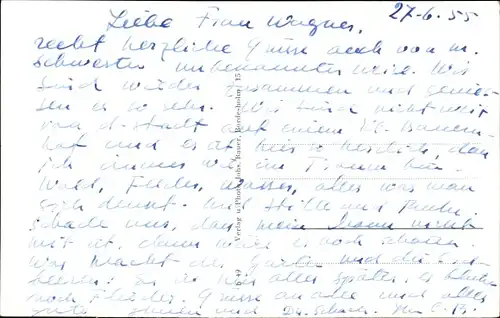 27-6.55
Liebe Frau Wagner,
recht herzliche Grüsse auch von m.
Schwester unbekannter Weise. Wir
sind wieder zusammen und genies-
sen es so sehr. Wir sind nicht weit
von d. Stadt auf einem kl. Bauern-
hof und es ist hier so herrlich, dass
ich immer wie im Traum bin.
Wald, Felder, Wasser, alles was man
sich denkt. Und Stille und Ruhe.
Schade nur, dass mein Mann nicht
mit ist, dann wäre es noch schöner.
Was macht der Garten und die Erd-
beeren? Es ist hier alles später, es blüht
noch Flieder. Grüsse an alle und alles
Gute Ihnen und Dr. Schach.
Verlag u. Photograph: Bauer, Bordesholm